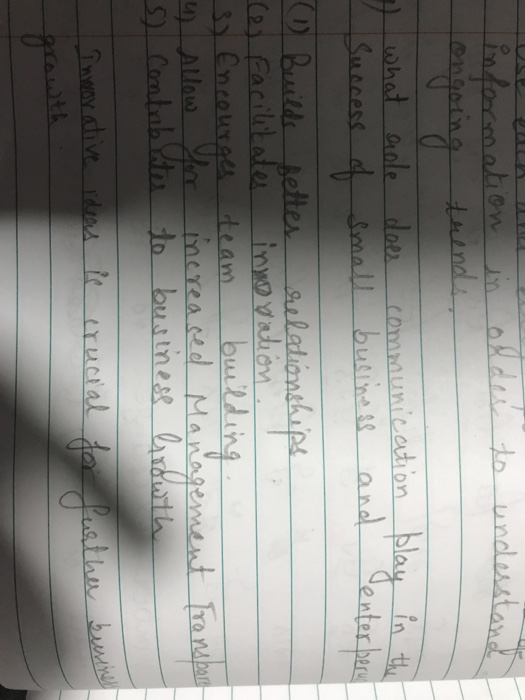 information in order to understand
ongoing trends.
what role does communication play in the
success of small business and
(1) Builds better relationships
(2) Facilitates innovation.
3) Encourges team building.
4) Allow for increased Management
5) Contributes to business Growth
Innovative ideas is crucial for further
growth